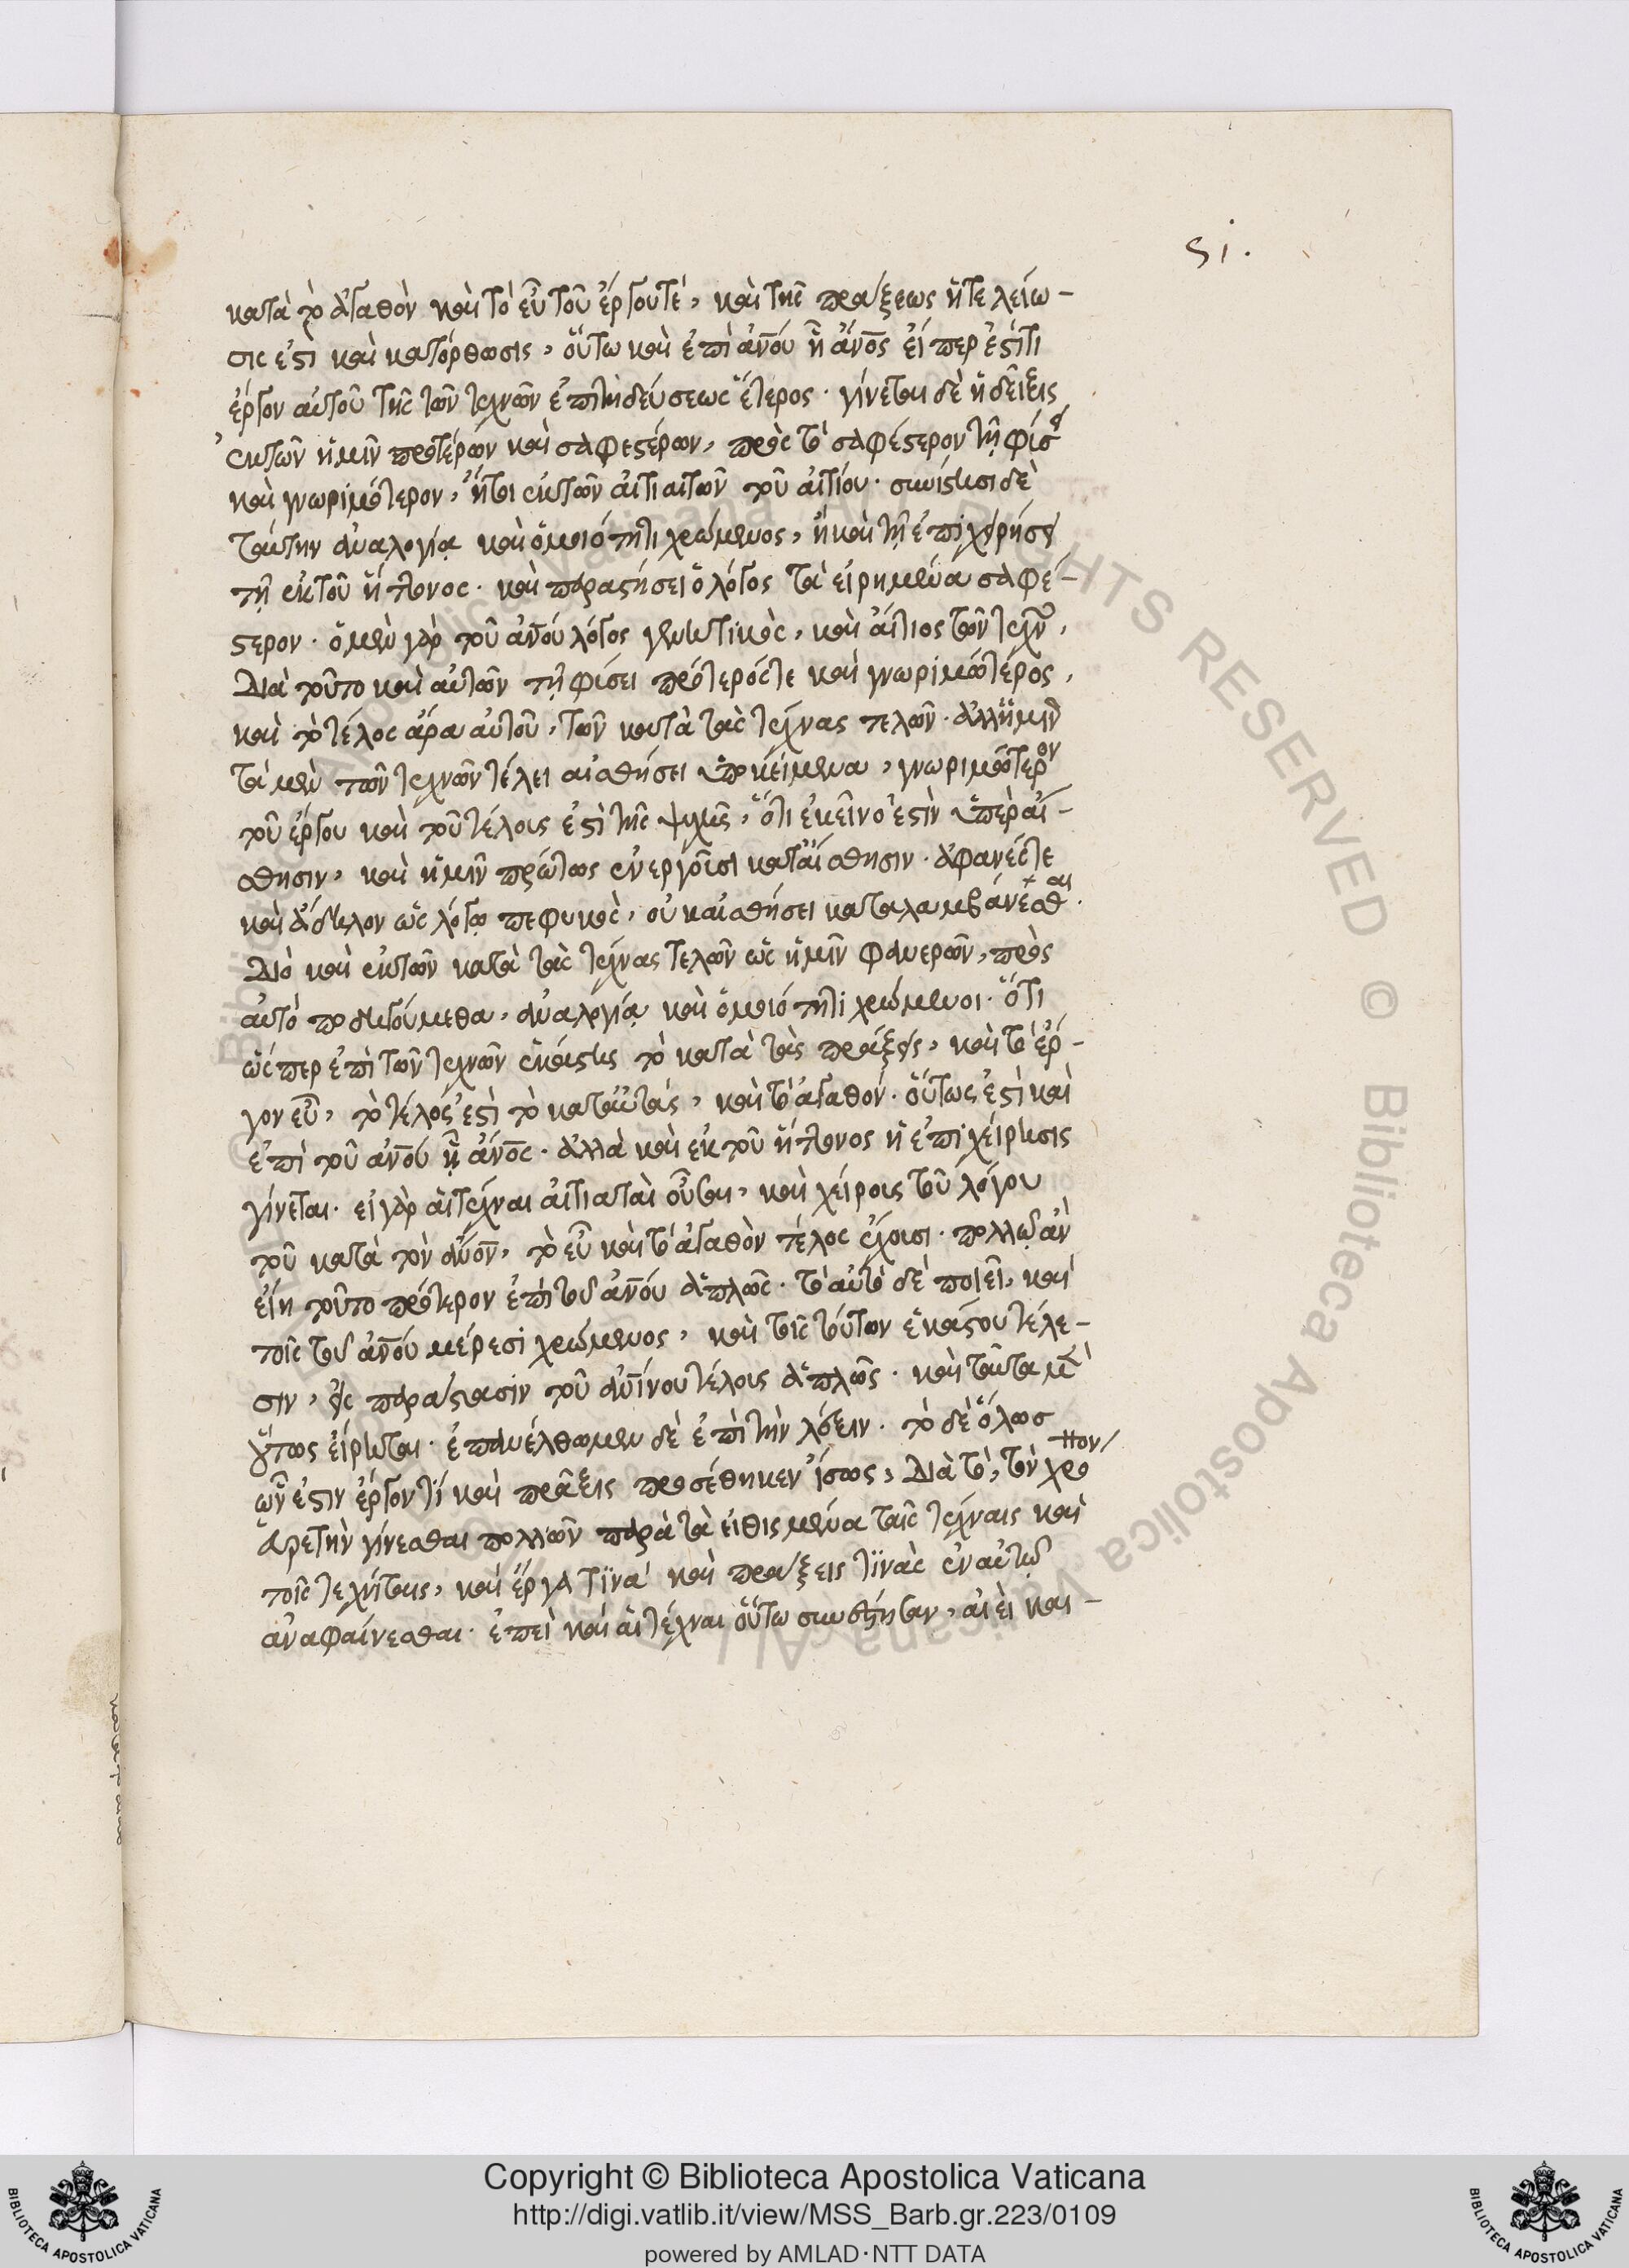 ςι.
κατὰ τὸ ἀγαθὸν καὶ τὸ εὖ τοῦ ἔργου τὲ, καὶ τῆς πράξεως ἡ τελείω-
σις ἐστὶ καὶ κατόρθωσις, οὕτω καὶ ἐπὶ ἀνου ᾗ ἄνος εἴπερ ἐστί τι
ἔργον αὐτοῦ τῆς τῶν τεχνῶν ἐπιτηδεύσεως ἕτερος. γίνεται δὲ ἡ δεῖξις
ἐκ τῶν ἡμῖν προτέρων καὶ σαφεστέρων, πρὸς τὸ σαφέστερον τῇ φύσει
καὶ γνωριμότερον, ἤτοι ἐκ τῶν αἰτιατῶν τοῦ αἰτίου. συνίστησι δὲ
ταύτην ἀναλογίᾳ καὶ ὁμοιότητι χρώμενος, ἢ καὶ τῇ ἐπιχειρήσει
τῇ ἐκ τοῦ ἥττονος. καὶ παραστήσει ὁ λόγος τὰ εἰρημένα σαφέ-
στερον. ὁ μὲν γὰρ τοῦ ἀνου λόγος γεννητικὸς, καὶ αἴτιος τῶν τεχνῶν,
Διὰ τοῦτο καὶ αὐτῶν τῇ φύσει πρότερός τε καὶ γνωριμώτερος,
καὶ τὸ τέλος ἄρα αὐτοῦ, τῶν κατὰ τὰς τέχνας τελῶν. ἀλλ' ἡμῖν
τὰ μὲν τῶν τεχνῶν τέλει αἰσθήσει ὑποκείμενα, γνωριμώτερον
τοῦ ἔργου καὶ τοῦ τέλους ἐστὶ τῆς ψυχῆς, ὅτι ἐκεῖνο ἐστὶν ὑπὲρ αἴ-
σθησιν, καὶ ἡμῖν πρώτως ἐνεργοῦσι κατ' αἴσθησιν. ἀφανές τε
καὶ ἄδηλον ὡς λόγῳ πεφυκὸς, οὐκ αἰσθήσει καταλαμβάνεσθαι.
Διὸ καὶ ἐκ τῶν κατὰ τὰς τέχνας τελῶν ὡς ἡμῖν φανερῶν, πρὸς
αὐτὸ ποδηγούμεθα, ἀναλογίᾳ καὶ ὁμοιότητι χρώμενοι. ὅτι
ὥσπερ ἐπὶ τῶν τεχνῶν ἑκάστης τὸ κατὰ τὰς πράξεις, καὶ τὸ ἔρ-
γον εὖ, τὸ τέλος ἐστὶ τὸ κατ' αὐτάς, καὶ τὸ ἀγαθόν. οὕτως ἐστὶ καὶ
ἐπὶ τοῦ ἀνου ᾗ ἄνος. ἀλλὰ καὶ ἐκ τοῦ ἥττονος ἡ ἐπιχείρησις
γίνεται. εἰ γὰρ αἱ τέχναι αἰτιαταὶ οὖσαι, καὶ χείρους τοῦ λόγου
τοῦ κατὰ τὸν ἄνον, τὸ εὖ καὶ τὸ ἀγαθὸν τέλος ἔχουσι. πολλῷ ἂν
εἴη τοῦτο πρότερον ἐπὶ τοῦ ἀνου ἁπλῶς. τὸ αὐτὸ δὲ ποιεῖ, καὶ
τοῖς τοῦ ἀνου μέρεσι χρώμενος, καὶ τοῖς τούτων ἑκάστου τέλε-
σιν, εἰς παράστασιν τοῦ ἀνίνου τέλους ἁπλῶς. καὶ ταῦτα μὲν
οὕτως εἴρηται. ἐπανέλθωμεν δὲ ἐπὶ τὴν λέξιν. τὸ δὲ ὅλως
ὧν ἐστιν ἔργον τί καὶ πρᾶξις προσέθηκεν ἴσως, Διὰ τὸ, τὸν τρόπον
ἀρετὴν γίνεσθαι πολλῶν παρὰ τὰ εἰθισμένα ταῖς τέχναις καὶ
τοῖς τεχνίταις, καὶ ἔργα τϊνὰ καὶ πράξεις τϊνὰς ἐν αὐτῷ
ἀναφαίνεσθαι. ἐπεὶ καὶ αἱ τέχναι οὕτω συνέστησαν, αἰεὶ και-
Copyright © Biblioteca Apostolica Vaticana
http://digi.vatlib.it/view/MSS_Barb.gr.223/0109
powered by AMLAD·NTT DATA